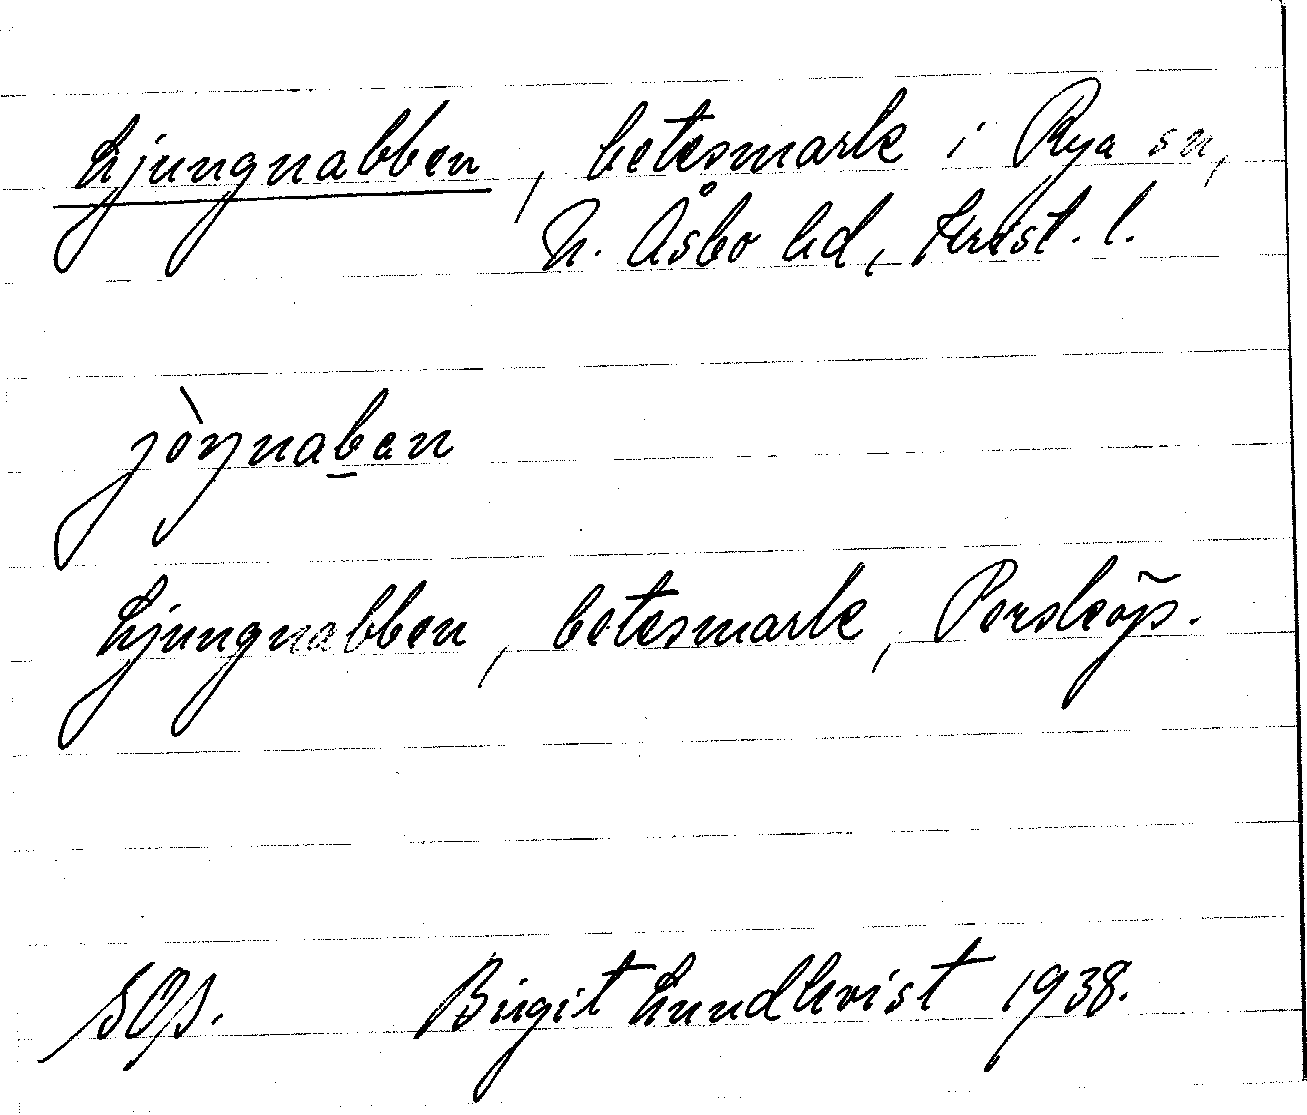 Ljungnabben, betesmark i Rya sn,
N. Åsbo hd, Krist. l.
jòŋnaḇan
Ljungnabben, betesmark, Perstorp.
SOS. Birgit Lundkvist 1938.